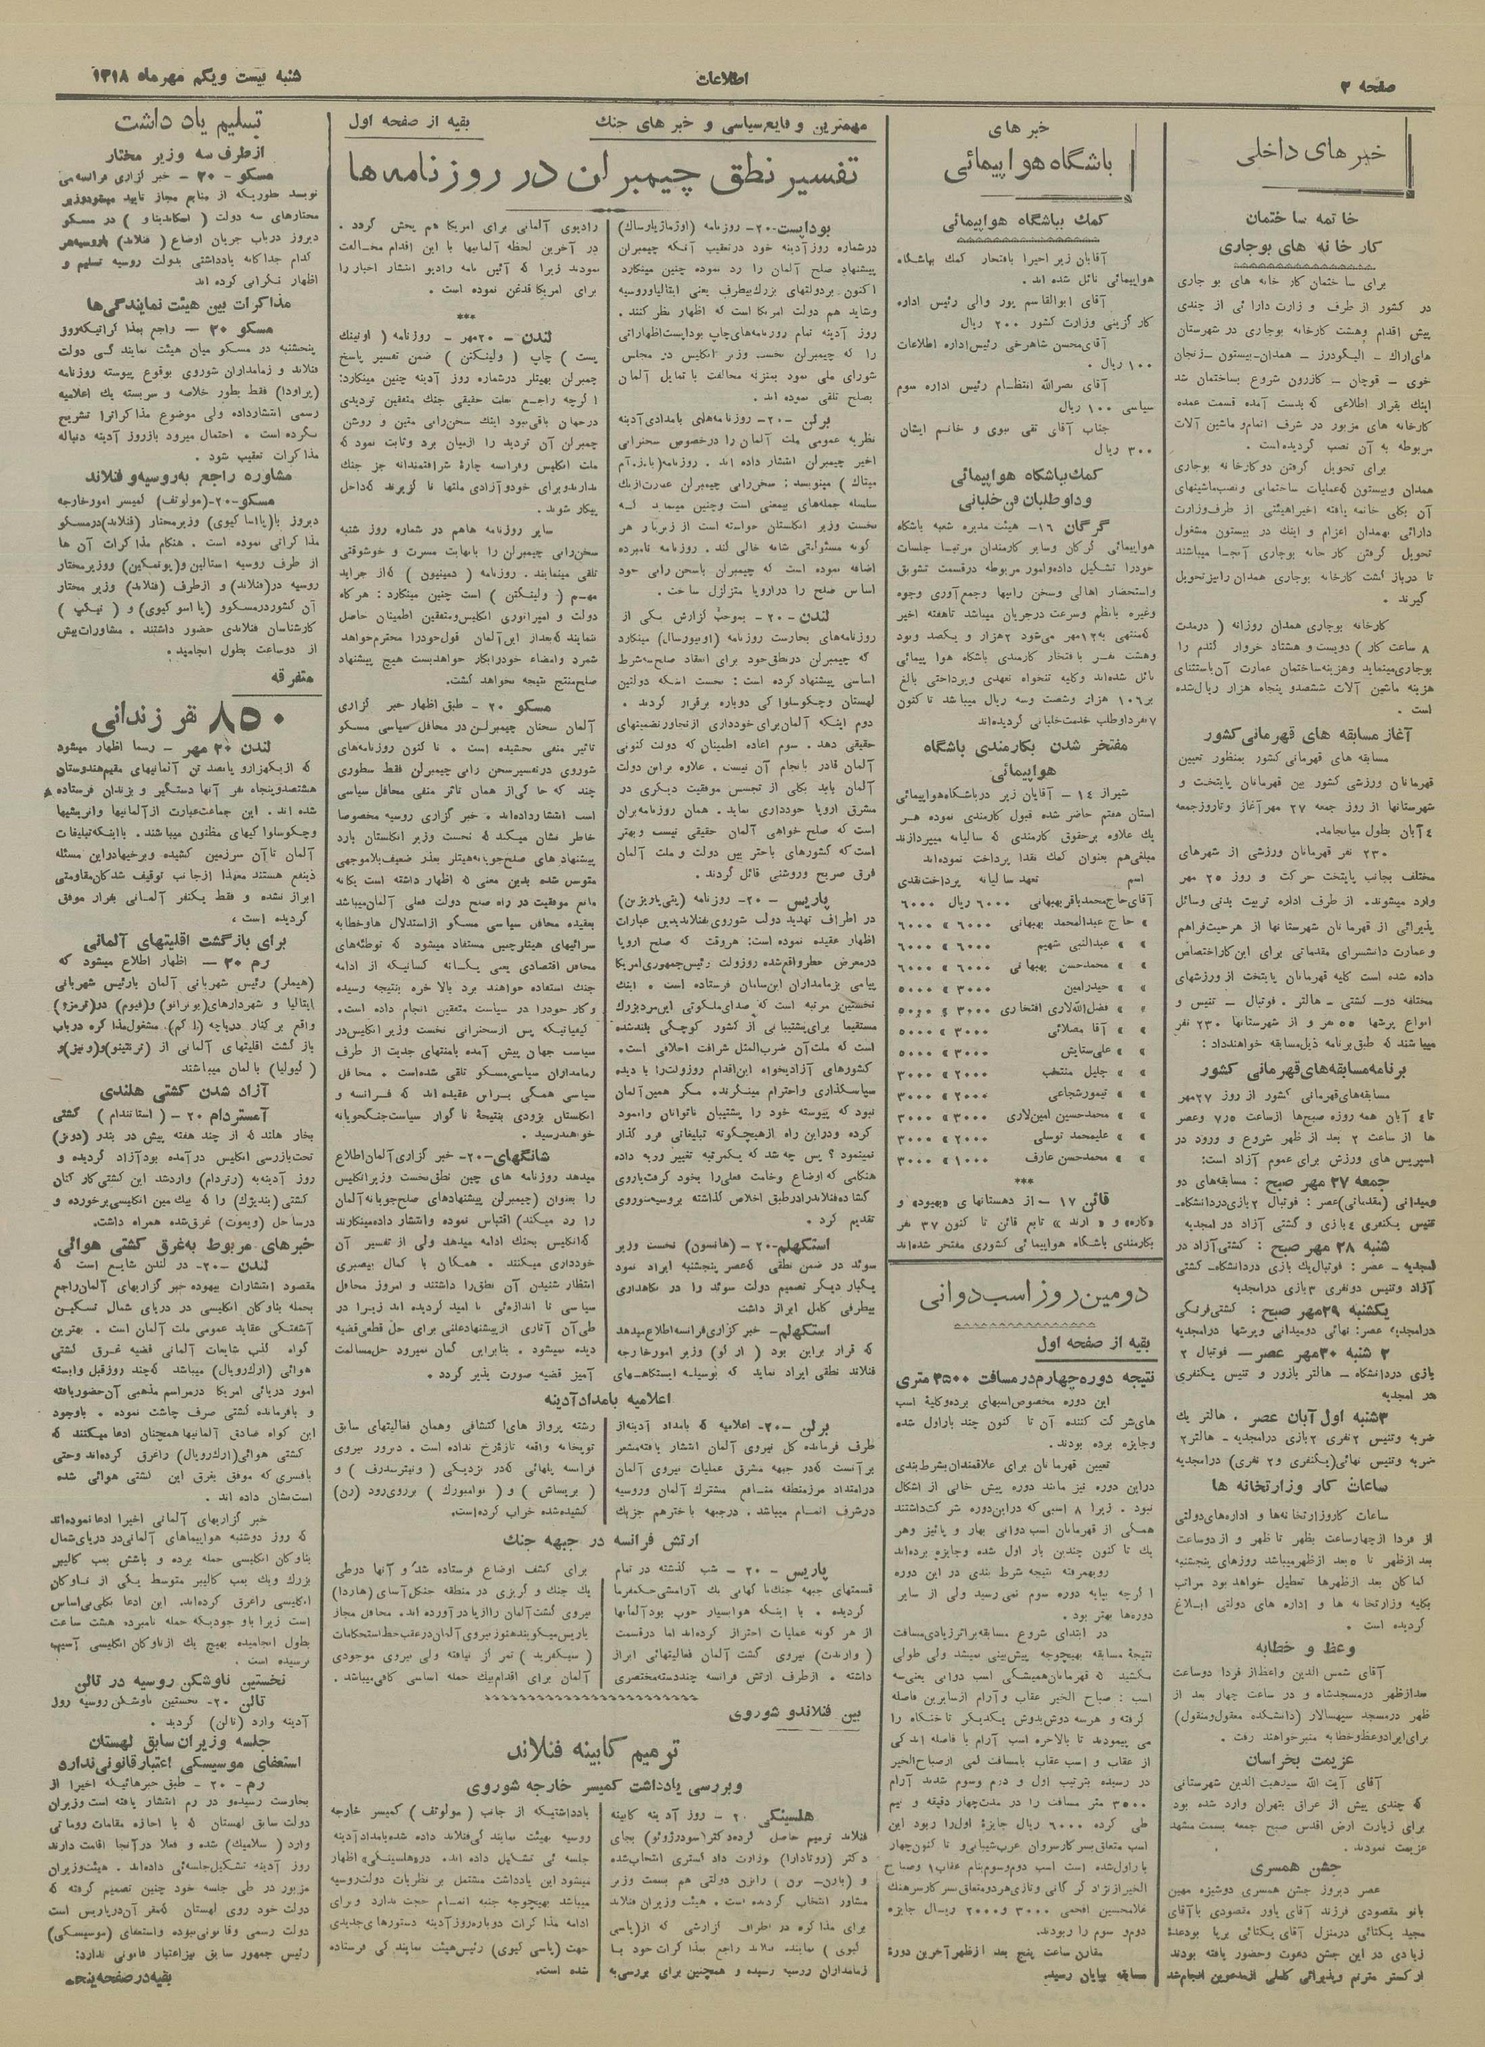 صفحه ۲
اطلاعات
شنبه بیست ویکم مهرماه ۱۳۱۸
خبر های داخلی
خاتمه ساختمان
کارخانه های بوجاری
برای ساختمان کار خانه های بوجاری
در کشور از طرف وزارت دارائی از چندی
پیش اقدام وهشت کارخانه بوجاری در شهرستان
های اراك - الیگودرز - همدان-بیستون -زنجان
خوی - قوچان - کازرون شروع بساختمان شد
اینك بقرار اطلاعی که بدست آمده قسمت عمده
کارخانه های مزبور در شرف اتمام وماشین آلات
مربوطه به آن نصب گردیده است.
برای تحویل گرفتن دوکارخانه بوجاری
همدان وبیستون که عملیات ساختمانی ونصب ماشینهای
آن بکلی خاتمه یافته اخیراهیئتی از طرف وزارت
دارائی بهمدان اعزام و اینك در بیستون مشغول
تحویل گرفتن کارخانه بوجاری آنجا میباشند
تا درباز گشت کارخانه بوجاری همدان رانیزتحویل
گیرند .
کارخانه بوجاری همدان روزانه ( درمدت
۸ ساعت کار ) دویست و هشتاد خروار گندم را
بوجاری مینماید وهزینه ساختمان عمارت آن باستثنای
هزینه ماشین آلات ششصدو پنجاه هزار ریال شده
است .
آغاز مسابقه های قهرمانی کشور
مسابقه های قهرمانی کشور بمنظور تعیین
قهرمانان ورزشی کشور بین قهرمانان پایتخت و
شهرستانها از روز جمعه ۲۷ مهر آغاز وتاروزجمعه
۴ آبان بطول میانجامد.
۲۳۰ نفر قهرمانان ورزشی از شهرهای
مختلف بجانب پایتخت حرکت و روز ۲۵ مهر
وارد میشوند. از طرف اداره تربیت بدنی وسائل
پذیرائی از قهرمانان شهرستانها از هرحیث فراهم
وعمارت دانشسرای مقدماتی برای این کار اختصاص
داده شده است کلیه قهرمانان پایتخت از ورزشهای
مختلفه دو- کشتی - هالتر . فوتبال - تنیس و
انواع پرشها ۵۵ نفر و از شهرستانها ۲۳۰ نفر
میباشند که طبق برنامه ذیل مسابقه خواهند داد :
برنامه مسابقه های قهرمانی کشور
مسابقه های قهرمانی کشور از روز ۲۷ مهر
تا ۴ آبان همه روزه صبحها از ساعت ۷/۵ وعصر
ها از ساعت ۲ بعد از ظهر شروع و ورود در
اسپریس های ورزش برای عموم آزاد است:
جمعه ۲۷ مهر صبح : مسابقه های دو
ومیدانی (مقدماتی)عصر : فوتبال ۲ بازی دردانشگاه-
تنیس یکنفری ۴ بازی و کشتی آزاد در امجدیه
شنبه ۲۸ مهر صبح : کشتی آزاد در
امجدیه - عصر : فوتبال یك بازی دردانشگاه- کشتی
آزاد وتنیس دونفری ۳ بازی درامجدیه
یکشنبه ۲۹ مهر صبح : کشتی فرنگی
درامجدیه عصر: نهائی دومیدانی وپرشها درامجدیه
۲ شنبه ۳۰ مهر عصر- فوتبال ۲
بازی دردانشگاه - هالتر بازور و تنیس یکنفری
در امجدیه
۳شنبه اول آبان عصر . هالتر یك
ضربه وتنیس ۲نفری ۲بازی درامجدیه - هالتر۲
ضربه وتنیس نهائی(یکنفری و۲ نفری) درامجدیه
ساعات کار وزارتخانه ها
ساعات کاروزارتخانه ها و اداره های دولتی
از فردا ازچهارساعت بظهر تا ظهر و ازدوساعت
بعد از ظهر تا ۵ بعد ازظهر میباشد روزهای پنجشنبه
کماکان بعد ازظهرها تعطیل خواهد بود مراتب
بکلیه وزارتخانه ها و اداره های دولتی ابلاغ
گردیده است .
وعظ و خطابه
آقای شمس الدین واعظ از فردا دوساعت
بعدازظهر درمسجدشاه و در ساعت چهار بعد از
ظهر درمسجد سپهسالار (دانشکده معقول ومنقول)
برای ایراد وعظ وخطابه منبر خواهند رفت .
عزیمت بخراسان
آقای آیت الله سیدهبت الدین شهرستانی
که چندی پیش از عراق بتهران وارد شده بود
برای زیارت ارض اقدس صبح جمعه بسمت مشهد
عزیمت نمودند.
جشن همسری
عصر دیروز جشن همسری دوشیزه مهین
بانو مقصودی فرزند آقای یاور مقصودی باآقای
مجید یکتائی درمنزل آقای یکتائی برپا بودعدۀ
زیادی در این جشن دعوت وحضور یافته بودند
ارکستر مترنم وپذیرائی کاملی ازمدعوین انجام شد
خبر های
باشگاه هواپیمائی
کمك بباشگاه هواپیمائی
آقایان زیر اخیرا بافتخار کمك بباشگاه
هواپیمائی نائل شده اند .
آقای ابوالقاسم پور والی رئیس اداره
کارگزینی وزارت کشور ۲۰۰ ریال
آقای محسن شاهرخی رئیس اداره اطلاعات
۱۰۰ ریال .
آقای نصرالله انتظام رئیس اداره سوم
سیاسی ۱۰۰ ریال
جناب آقای تقی نبوی و خانم ایشان
۳۰۰ ریال
کمك بباشگاه هواپیمائی
وداوطلبان فن خلبانی
گرگان ۱۶- هیئت مدیره شعبه باشگاه
هواپیمائی گرگان وسایر کارمندان مرتبا جلسات
خودرا تشکیل داده وامور مربوطه درقسمت تشویق
واستحضار اهالی وسخن رانیها وجمع آوری وجوه
وغیره بانظم وسرعت درجریان میباشد تاهفته اخیر
که منتهی به ۱۲ مهر می شود ۲هزار و یکصد ونود
وهشت نفر بافتخار کارمندی باشگاه هوا پیمائی
نائل شده اند وکلیه تنخواه تعهدی وپرداختی بالغ
بر۱۰۶ هزار وشصت وسه ریال میباشد تا کنون
۷نفرداوطلب خدمت خلبانی گردیده اند
مفتخر شدن بکارمندی باشگاه
هواپیمائی
شیراز ۱۴ - آقایان زیر درباشگاه هواپیمائی
استان هفتم حاضر شده قبول کارمندی نموده هر
یك علاوه برحقوق کارمندی که سالیانه میپردازند
مبلغی هم بعنوان کمك نقدا پرداخت نموده اند
اسم تعهد سالیانه پرداخت نقدی
آقای حاج محمدباقر بهبهانی ۶۰۰۰ ریال ۶۰۰۰
» حاج عبدالمحمد بهبهانی ۶۰۰۰ » ۶۰۰۰
» » عبدالنبی شهیم ۶۰۰۰ » ۶۰۰۰
» » محمدحسن بهبهانی ۶۰۰۰ » ۶۰۰۰
» » حیدرامین ۳۰۰۰ » ۵۰۰۰
» » فضل الله لاری افتخاری ۳۰۰۰ » ۵۰۰۰
» » آقا مصلائی ۳۰۰۰ » ۵۰۰۰
» » علی ستایش ۳۰۰۰ » ۵۰۰۰
» » جلیل منتخب ۲۰۰۰ » ۳۰۰۰
» » تیمورشجاعی ۲۰۰۰ » ۳۰۰۰
» » محمدحسین امین لاری ۳۰۰۰ » ۳۰۰۰
» » علیمحمد توسلی ۲۰۰۰ » ۳۰۰۰
» » محمدحسن عارف ۱۰۰۰ » ۳۰۰۰
***
قائن ۱۷ - از دهستانهای «بهبود» و
«کاره» و « ارند » تابع قائن تا کنون ۳۷ نفر
بکارمندی باشگاه هواپیمائی کشوری مفتخر شده اند
دومین روز اسب دوانی
بقیه از صفحه اول
نتیجه دوره چهارم درمسافت ۳۵۰۰ متری
این دوره مخصوص اسبهای برده وکلیۀ اسب
های شرکت کننده آن تا کنون چند بار اول شده
وجایزه برده بودند.
تعیین قهرمانان برای علاقمندان بشرط بندی
دراین دوره نیز مانند دوره پیش خالی از اشکال
نبود . زیرا ۸ اسبی که دراین دوره شرکت داشتند
همگی از قهرمانان اسب دوانی بهار و پائیز وهر
یك تا کنون چندین بار اول شده وجایزه برده اند
رویهمرفته نتیجه شرط بندی در این دوره
اگرچه بپایه دوره سوم نمی رسید ولی از سایر
دوره ها بهتر بود .
در ابتدای شروع مسابقه براثر زیادی مسافت
نتیجۀ مسابقه بهیچوجه پیش بینی نمیشد ولی طولی
نکشید که قهرمانان همیشگی اسب دوانی یعنی سه
اسب : صباح الخیر عقاب و آرام ازسایرین فاصله
گرفته و هرسه دوش بدوش یکدیگر تاخنگاه را
می پیمودند تا بالاخره اسب آرام با فاصله اندکی
از عقاب و اسب عقاب بامسافت کمی ازصباح الخیر
در رسیده بترتیب اول و دوم وسوم شدند آرام
۳۵۰۰ متر مسافت را در مدت چهار دقیقه و نیم
طی کرده ۶۰۰۰ ریال جایزۀ اول را ربود این
اسب متعلق بسرکارسروان عرب شیبانی و تا کنون چهار
باراول شده است اسب دوم وسوم بنام عقاب ۱ و صباح
الخیرازنژاد گرگانی وتازی هر دومتعلق بسرکارسرهنگ
غلامحسین افخمی ۳۰۰۰ و۲۰۰۰ ریال جایزه
دوم و سوم را ربودند.
مقارن ساعت پنج بعد ازظهر آخرین دورۀ
مسابقه بپایان رسید.
مهمترین وقایع سیاسی و خبر های جنك
بقیه از صفحه اول
تفسیر نطق چیمبرلن در روزنامه ها
بوداپست-۲۰- روزنامه (اوژماژیارساك)
درشماره روز آدینه خود درتعقیب آنکه چیمبرلن
پیشنهاد صلح آلمان را رد نموده چنین مینگارد
اکنون بردولتهای بزرك بیطرف یعنی ایتالیاوروسیه
وشاید هم دولت امریکا است که اظهار نظر کنند.
روز آدینه تمام روزنامه های چاپ بوداپست اظهاراتی
را که چیمبرلن نخست وزیر انگلیس در مجلس
شورای ملی نمود بمنزله مخالفت با تمایل آلمان
بصلح تلقی نموده اند .
برلن -۲۰- روزنامه های بامدادی آدینه
نظریه عمومی ملت آلمان را درخصوص سخنرانی
اخیر چیمبرلن انتشار داده اند . روزنامه (ب.ز.آم
میتاك) مینویسد : سخن رانی چیمبرلن عبارت ازیك
سلسله جمله های بیمعنی است وچنین مینماید که
نخست وزیر انگلستان خواسته است از زیربار هر
گونه مسئولیتی شانه خالی کند . روزنامه نامبرده
اضافه نموده است که چیمبرلن باسخن رانی خود
اساس صلح را دراروپا متزلزل ساخت .
لندن -۲۰- بموجب گزارش یکی از
روزنامه های بخارست روزنامه (اونیورسال) مینگارد
که چیمبرلن درنطق خود برای انعقاد صلح سه شرط
اساسی پیشنهاد کرده است : نخست اینکه دولتین
لهستان وچکوسلواکی دوباره برقرار گردند .
دوم اینکه آلمان برای خودداری ازتجاوز تضمینهای
حقیقی دهد. سوم اعاده اطمینان که دولت کنونی
آلمان قادر بانجام آن نیست. علاوه براین دولت
آلمان باید بکلی از تجسس موفقیت دیگری در
مشرق اروپا خودداری نماید. همان روزنامه برآن
است که صلح خواهی آلمان حقیقی نیست وبهتر
است که کشورهای باختر بین دولت و ملت آلمان
فرق صریح وروشنی قائل گردند.
پاریس -۲۰- روزنامه (پتی پاریزین)
در اطراف تهدید دولت شوروی فنلاندبدین عبارات
اظهار عقیده نموده است: هروقت که صلح اروپا
درمعرض خطر واقع شده روزولت رئیس جمهوری امریکا
پیامی بزمامداران این سامان فرستاده است . اینك
نخستین مرتبه است که صدای ملکوتی این مرد بزرك
مستقیما برای پشتیبانی از کشور کوچکی بلندشده
است که ملت آن ضرب المثل شرافت اخلاقی است.
کشورهای آزادیخواه این اقدام روزولت را با دیده
سپاسگذاری واحترام مینگرند. مگر همین آلمان
نبود که پیوسته خود را پشتیبان ناتوانان وانمود
کرده ودراین راه ازهیچگونه تبلیغاتی فرو گذار
نمینمود ؟ پس چه شد که یکمرتبه تغییر رویه داده
هنگامی که اوضاع وخامت فعلی را بخود گرفت بازوی
گشاده فنلاندرادرطبق اخلاص گذاشته بروسیه شوروی
تقدیم کرد .
استکهلم-۲۰ - (هانسون) نخست وزیر
سوئد در ضمن نطقی که عصر پنجشنبه ایراد نمود
یکبار دیگر تصمیم دولت سوئد را در نگاهداری
بیطرفی کامل ابراز داشت
استکهلم- خبر گزاری فرانسه اطلاع میدهد
که قرار براین بود ( ارکو) وزیر امورخارجه
فنلاند نطقی ایراد نماید که بوسیله ایستگاههای
رادیوی آلمانی برای امریکا هم پخش گردد .
در آخرین لحظه آلمانیها با این اقدام مخالفت
نمودند زیرا که آئین نامه رادیو انتشار اخبار را
برای امریکا قدغن نموده است .
***
لندن - ۲۰مهر - روزنامه ( اونینك
پست ) چاپ ( ولینکتن ) ضمن تفسیر پاسخ
چمبرلن بهیتلر درشماره روز آدینه چنین مینگارد:
اگرچه راجع بعلت حقیقی جنك متفقین تردیدی
درجهان باقی نبود اینك سخن رانی متین و روشن
چمبرلن آن تردید را ازمیان برد وثابت نمود که
ملت انگلیس وفرانسه چارۀ شرافتمندانه جز جنك
ندارندوبرای خودو آزادی ملتها ناگزیرند که داخل
پیکار شوند.
سایر روزنامه هاهم در شماره روز شنبه
سخن رانی چیمبرلن را بانهایت مسرت و خوشوقتی
تلقی مینمایند. روزنامه ( دمینیون ) که از جراید
مهم ( ولینکتن ) است چنین مینگارد : هرگاه
دولت و امپراتوری انگلیس ومتفقین اطمینان حاصل
نمایند که بعداز این آلمان قول خودرا محترم خواهد
شمرد وامضاء خودرا بکار خواهدبست هیچ پیشنهاد
صلح منتج نتیجه نخواهد گشت.
مسکو ۲۰ - طبق اظهار خبر گزاری
آلمان سخنان چیمبرلن در محافل سیاسی مسکو
تاثیر منفی بخشیده است . تا کنون روزنامه های
شوروی درتفسیرسخن رانی چیمبرلن فقط سطوری
چند که حاکی از همان تاثر منفی محافل سیاسی
است انتشارداده اند . خبر گزاری روسیه مخصوصا
خاطر نشان میکند که نخست وزیر انگلستان بارد
پیشنهاد های صلح جویانه هیتلر بعذر ضعیف بلاموجهی
متوسل شده بدین معنی که اظهار داشته است یگانه
مانع موفقیت در راه صلح دولت فعلی آلمان میباشد
بعقیده محافل سیاسی مسکو از استدلال هاوخطابه
سرائیهای هیتلرچنین مستفاد میشود که توطئه های
محافل اقتصادی یعنی یگانه کسانیکه از ادامه
جنك استفاده خواهند برد بالا خره بنتیجه رسیده
وکار خودرا در سیاست متفقین انجام داده است.
کیفیاتیکه پس ازسخنرانی نخست وزیر انگلیس در
سیاست جهان پیش آمده بامنتهای جدیت از طرف
زمامداران سیاسی مسکو تلقی شده است . محافل
سیاسی همگی براین عقیده اند که فرانسه و
انگلستان بزودی بنتیجۀ ناگوار سیاست جنگجویانه
خواهندرسید.
شانگهای-۲۰- خبر گزاری آلمان اطلاع
میدهد روزنامه های چین نطق نخست وزیر انگلیس
را بعنوان (چیمبرلن پیشنهادهای صلح جویانه آلمان
را رد میکند) اقتباس نموده وانتشار داده مینگارند
که انگلیس بجنك ادامه میدهد ولی از تفسیر آن
خودداری میکنند. همگان با کمال بیصبری
انتظار شنیدن آن نطق را داشتند و امروز محافل
سیاسی تا اندازه ئی نا امید گردیده اند زیرا در
طی آن آثاری ازپیشنهاد علنی برای حل قطعی قضیه
دیده نمیشود . بنابراین گمان نمیرود حل مسالمت
آمیز قضیه صورت پذیر گردد .
اعلامیه بامداد آدینه
برلن -۲۰- اعلامیه که بامداد آدینه از
طرف فرمانده کل نیروی آلمان انتشار یافته مشعر
برآنست که در جبهه مشرق عملیات نیروی آلمان
درامتداد مرز منطقه منافع مشترك آلمان وروسیه
درشرف اتمام میباشد. درجبهه باختر هم جز یك
رشته پرواز های اکتشافی وهمان فعالیتهای سابق
توپخانه واقعه تازه رخ نداده است . دیروز نیروی
فرانسه پلهائی که در نزدیکی ( وینترسدرف ) و
( بریساش ) و ( نوامبورك ) برروی رود (رن)
کشیده شده خراب کرده است.
ارتش فرانسه در جبهه جنك
پاریس - ۲۰ - شب گذشته در تمام
قسمتهای جبهه جنك ناگهانی یك آرامشی حکمفرما
گردیده . با اینکه هوا بسیار خوب بود آلمانها
از هر گونه عملیات احتراز کرده اند اما درقسمت
( وارندت) نیروی گشت آلمان فعالیتهائی ابراز
داشته . از طرف ارتش فرانسه چنددسته مختصری
برای کشف اوضاع فرستاده شد و آنها درطی
یك جنك و گریزی در منطقه جنگل آسای (هاردا)
نیروی گشت آلمان را ازپا درآورده اند. محافل مجاز
پاریس میگویند هنوز نیروی آلمان درعقب خط استحکامات
( سیگفرید ) تمرکز نیافته ولی نیروی موجودی
آلمان برای اقدام بیك حمله اساسی کافی میباشد.
بین فنلاندو شوروی
ترمیم کابینه فنلاند
وبررسی یادداشت کمیسر خارجه شوروی
هلسینکی ۲۰ - روز آدینه کابینه
فنلاند ترمیم حاصل کرده دکتر(سودرژولم) بجای
دکتر (رونادارا) بوزارت دادگستری انتخاب شده
و (بارن- برن) رایزن دولتی هم بسمت وزیر
مشاور انتخاب گردیده است . هیئت وزیران فنلاند
برای مذاکره در اطراف گزارشی که از(پاسی
کیوی ) نماینده فنلاند راجع بمذاکرات خود با
زمامداران روسیه رسیده و همچنین برای بررسی به
یادداشتیکه از جانب ( مولوتف ) کمیسر خارجه
روسیه بهیئت نمایندگی فنلاند داده شده بامداد آدینه
جلسه ئی تشکیل داده اند. در«هلسینکی» اظهار
میشود این یادداشت مشتمل بر نظریات دولت روسیه
میباشد بهیچوجه جنبه اتمام حجت ندارد و برای
ادامه مذاکرات دوباره روز آدینه دستورهای جدیدی
جهت (پاسی کیوی) رئیس هیئت نمایندگی فرستاده
شده است.
تسلیم یاد داشت
از طرف سه وزیر مختار
مسکو - ۲۰ - خبر گزاری فرانسه می
نویسد بطوریکه از منابع مجاز تایید میشود وزیر
مختارهای سه دولت ( اسکاندیناو ) در مسکو
دیروز درباب جریان اوضاع (فنلاند) باروسیه هر
کدام جداگانه یادداشتی بدولت روسیه تسلیم و
اظهار نگرانی کرده اند
مذاکرات بین هیئت نمایندگی ها
مسکو ۲۰ - راجع بمذاکراتیکه روز
پنجشنبه در مسکو میان هیئت نمایندگی دولت
فنلاند و زمامداران شوروی بوقوع پیوسته روزنامه
(پراودا) فقط بطور خلاصه و سربسته یك اعلامیه
رسمی انتشارداده ولی موضوع مذاکراترا تشریح
نکرده است . احتمال میرود باز روز آدینه دنباله
مذاکرات تعقیب شود .
مشاوره راجع به روسیه و فنلاند
مسکو-۲۰-(مولوتف) کمیسر امورخارجه
دیروز با(پااسا کیوی) وزیرمختار (فنلاند)درمسکو
مذاکراتی نموده است . هنگام مذاکرات آن ها
از طرف روسیه استالین و(پوتمکین) ووزیرمختار
روسیه در(فنلاند) و ازطرف (فنلاند) وزیر مختار
آن کشوردرمسکوو (پااسوکیوی) و ( نیکپ )
کارشناسان فنلاندی حضور داشتند . مشاورات بیش
از دوساعت بطول انجامید .
متفرقه
۸۵۰ نفر زندانی
لندن ۲۰ مهر - رسما اظهار میشود
که از یکهزارو پانصد تن آلمانیهای مقیم هندوستان
هشتصدوپنجاه نفر آنها دستگیر و بزندان فرستاده
شده اند. این جماعت عبارت از آلمانیها واتریشیها
وچکوسلواکیهای مظنون میباشند. با اینکه تبلیغات
آلمان تاآن سرزمین کشیده وبرخیهادراین مسئله
ذینفع هستند معهذا ازجانب توقیف شدگان مقاومتی
ابراز نشده و فقط یکنفر آلمانی بفرار موفق
گردیده است .
برای بازگشت اقلیتهای آلمانی
رم ۲۰ - اظهار اطلاع میشود که
(هیملر) رئیس شهربانی آلمان بارئیس شهربانی
ایتالیا و شهردارهای(بوتزانو) و(فیوم) در(ترمزو)
واقع برکنار دریاچه (اکم) مشغول مذاکره درباب
باز گشت اقلیتهای آلمانی از (ترنتینو)و(ونیز)و
( کیولیا) بآلمان میباشند
آزاد شدن کشتی هلندی
آمستردام ۲۰ - ( استاتندام ) کشتی
بخار هلند که از چند هفته پیش در بندر (دونز)
تحت بازرسی انگلیس درآمده بود آزاد گردیده و
روز آدینه به (رتردام) واردشد. این کشتی کارکنان
کشتی (بندیژك) را که بیك مین انگلیسی برخورده و
درساحل (ویموت) غرق شده همراه داشت.
خبرهای مربوط به غرق کشتی هوائی
لندن -۲۰- در لندن شایع است که
مقصود انتشارات بیهوده خبر گزاریهای آلمان راجع
بحمله بناوگان انگلیسی در دریای شمال تسکین
آشفتگی عقاید عمومی ملت آلمان است . بهترین
گواه کذب شایعات آلمانی قضیه غرق کشتی
هوائی (ارك رویال) میباشد که چند روزقبل وابسته
امور دریائی امریکا درمراسم مذهبی آن حضور یافته
و بافرمانده کشتی صرف چاشت نموده . باوجود
این گواه صادق آلمانیها همچنان ادعا میکنند که
کشتی هوائی(ارك رویال) راغرق کرده اند وحتی
بافسری که موفق بغرق این کشتی هوائی شده
است نشان داده اند .
خبر گزاریهای آلمانی اخیرا ادعا نموده اند
که روز دوشنبه هواپیماهای آلمانی در دریای شمال
بناوگان انگلیسی حمله برده و باشش بمب کالیبر
بزرك ویك بمب کالیبر متوسط یکی از ناوگان
انگلیسی راغرق کرده اند. این ادعا بکلی بی اساس
است زیرا باوجودیکه حمله نامبرده هشت ساعت
بطول انجامیده بهیچ یك از ناوگان انگلیسی آسیب
نرسیده است .
نخستین ناوشکن روسیه در تالن
تالن -۲۰- نخستین ناوشکن روسیه روز
آدینه وارد (تالن) گردید .
جلسه وزیران سابق لهستان
استعفای موسیسکی اعتبار قانونی ندارد
رم - ۲۰ - طبق خبرهائیکه اخیرا از
بخارست رسیده و در رم انتشار یافته است وزیران
دولت سابق لهستان که با اجازه مقامات رومانی
وارد ( سلامیك) شده و فعلا درآنجا اقامت دارند
روز آدینه تشکیل جلسه ئی داده اند . هیئت وزیران
مزبور در طی جلسه خود چنین تصمیم گرفته که
دولت خود روی لهستان که مقر آن درپاریس است
دولت رسمی وقانونی نبوده واستعفای (موسیسکی)
رئیس جمهور سابق نیز اعتبار قانونی ندارد:
بقیه در صفحه پنجم